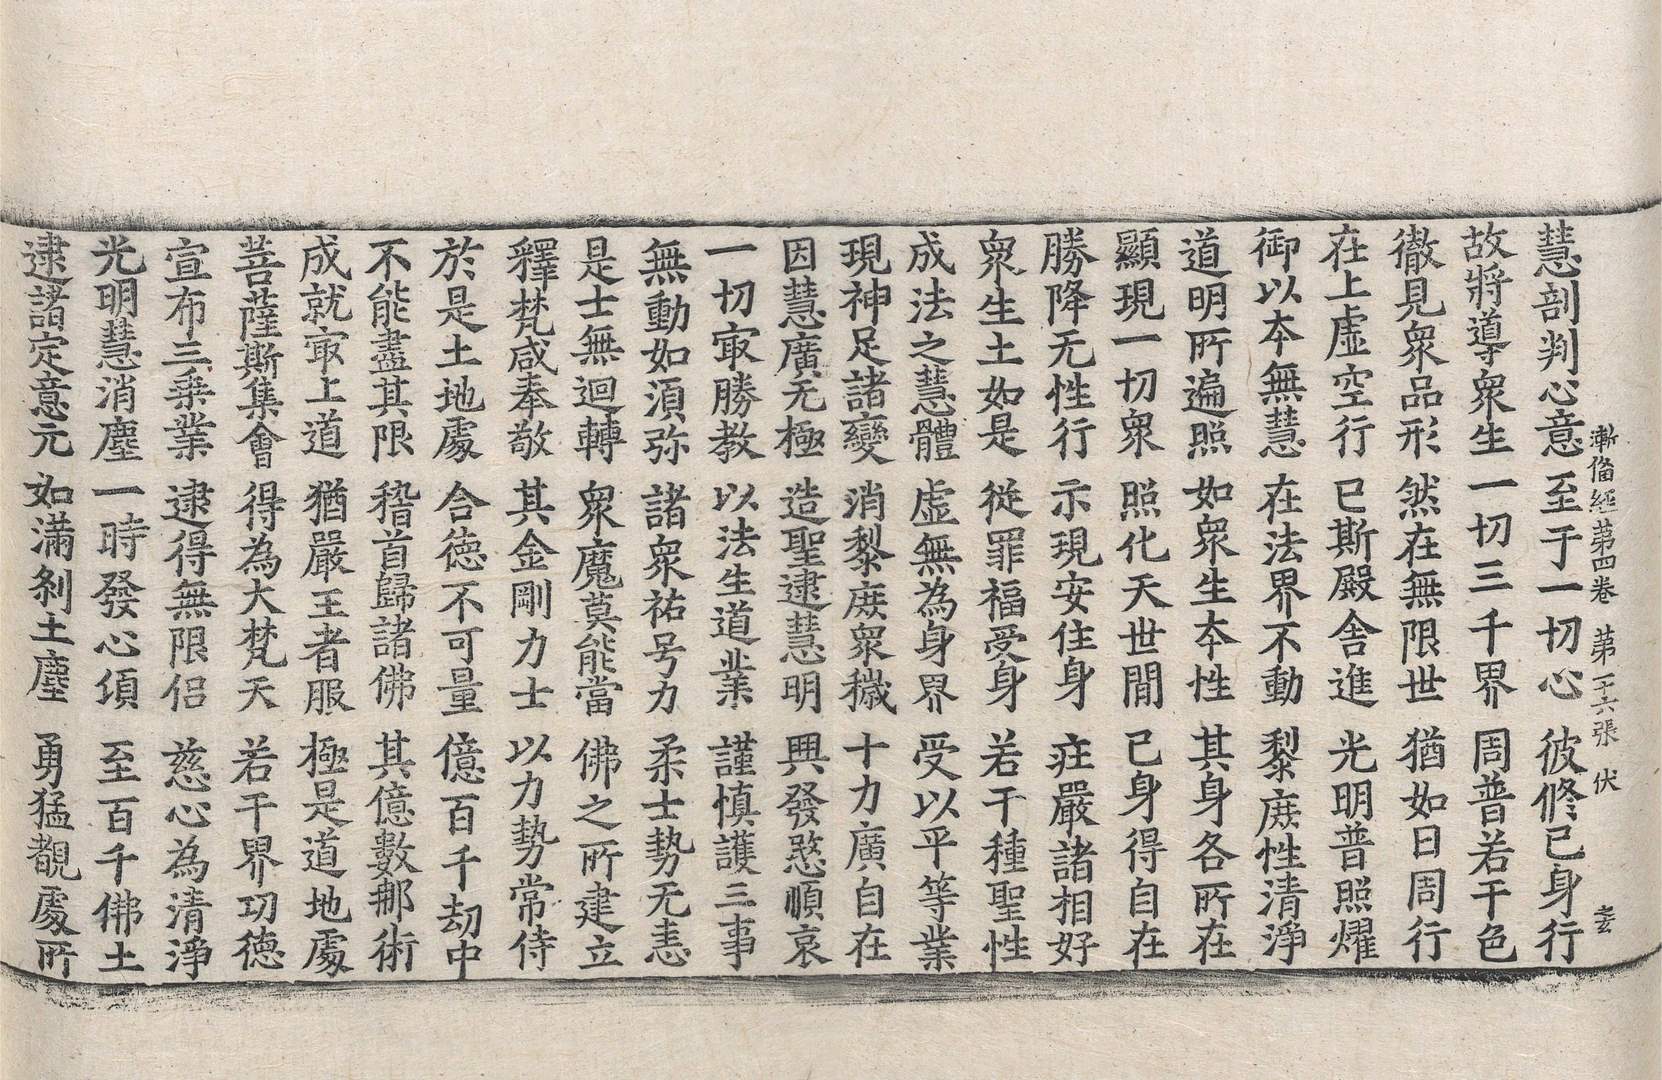 漸俻經第四卷　第二十六張　伏　玄
慧剖判心意　至于一切心　彼脩已身行
故將導衆生　一切三千界　周普若干色
徹見衆品形　然在無限世　猶如日周行
在上虛空行　已斯殿舍進　光明普照燿
御以夲無慧　在法界不動　黎庶性清淨
道明所遍照　如衆生夲性　其身各所在
顯現一切衆　照化天世間　已身得自在
勝降无性行　示現安住身　疰嚴諸相好
衆生土如是　從罪福受身　若干種聖性
成法之慧體　虛無為身界　受以平等業
現神足諸變　消黎庶衆穢　十力廣自在
因慧廣无極　造聖逮慧明　興發愍順哀
一切㝡勝教　以法生道業　謹慎護三事
無動如須弥　諸衆祐号力　柔士勢无恚
是士無迴轉　衆魔莫能當　佛之所建立
釋梵咸奉敬　其金剛力士　以力勢常侍
於是土地處　合德不可量　億百千劫中
不能盡其限　稽首歸諸佛　其億數鄉術
成就㝡上道　猶嚴王者服　極是道地處
菩薩斯集會　得為大梵天　若干界功德
宣布三乘業　逮得無限侶　慈心為清淨
光明慧消塵　一時發心頃　至百千佛土
逮諸定意元　如滿剎土塵　勇猛覩處所